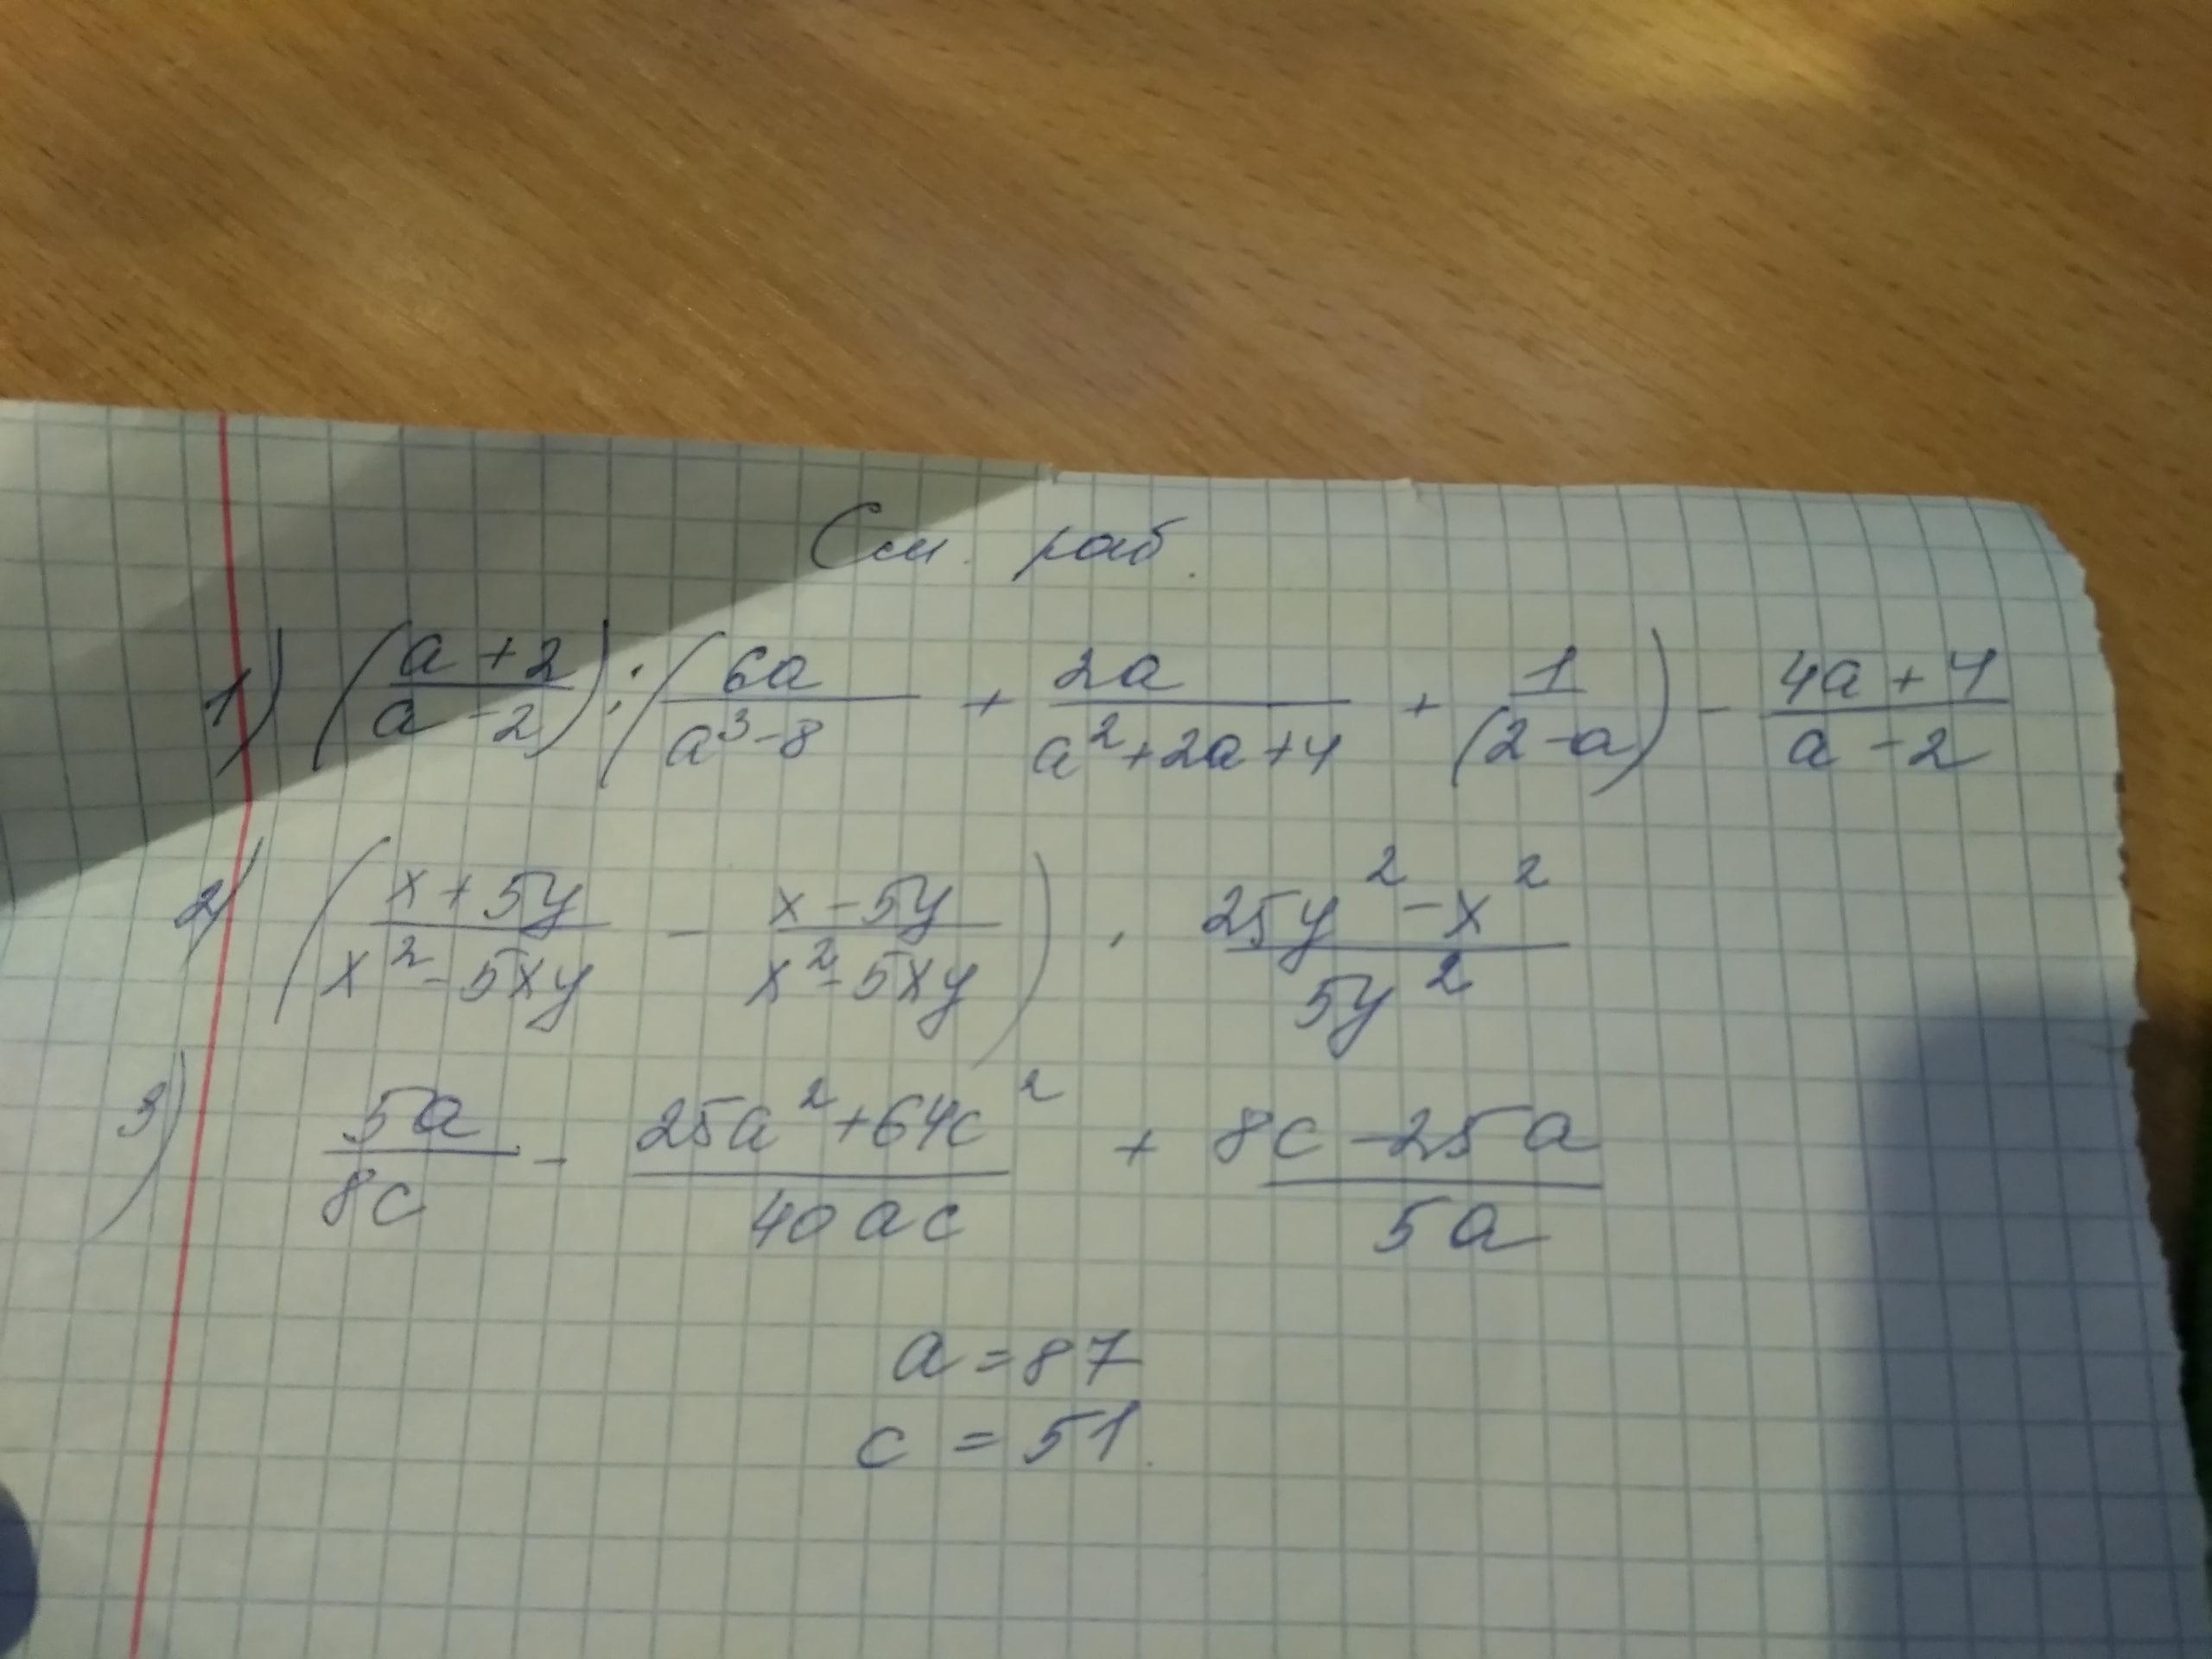 См. раб.
1) (a+2/a-2) : (6a/a³-8 + 2a/a²+2a+4 + 1/(2-a)) - 4a+4/a-2
2) (x+5y/x²-5xy - x-5y/x²-5xy) · 25y²-x²/5y²
3) 5a/8c - 25a²+64c²/40ac + 8c-25a/5a
a=87
c=51.